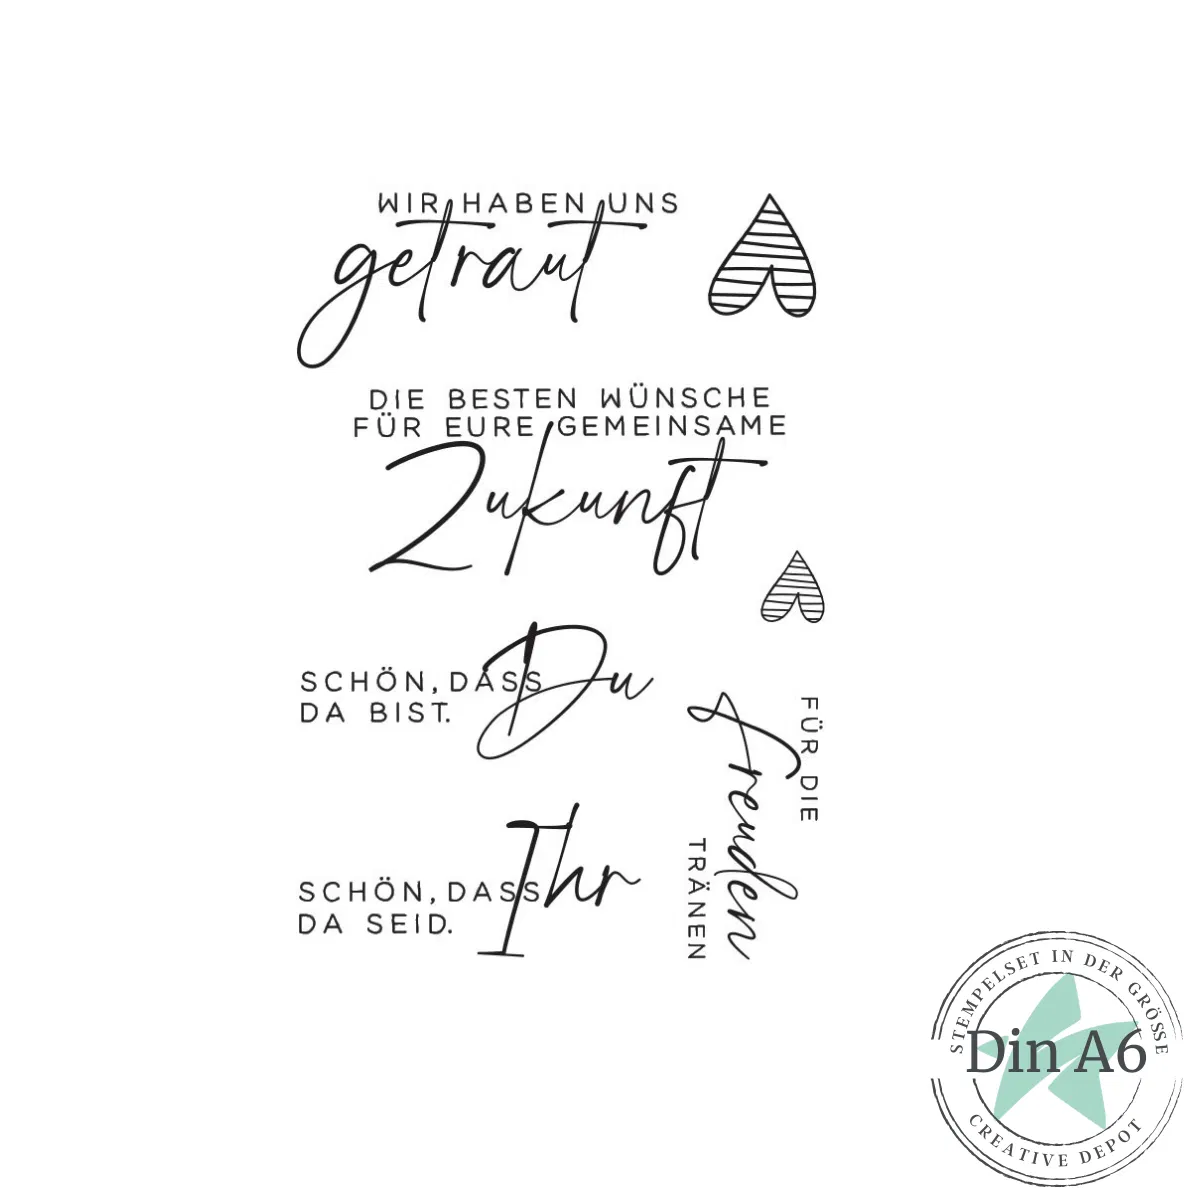 WIR HABEN UNS
getraut
DIE BESTEN WÜNSCHE
FÜR EURE GEMEINSAME
Zukunft
SCHÖN, DASS Du
DA BIST.
FÜR DIE
Freuden
TRÄNEN
SCHÖN, DASS Ihr
DA SEID.
STEMPELSET IN DER GRÖSSE
Din A6
CREATIVE DEPOT